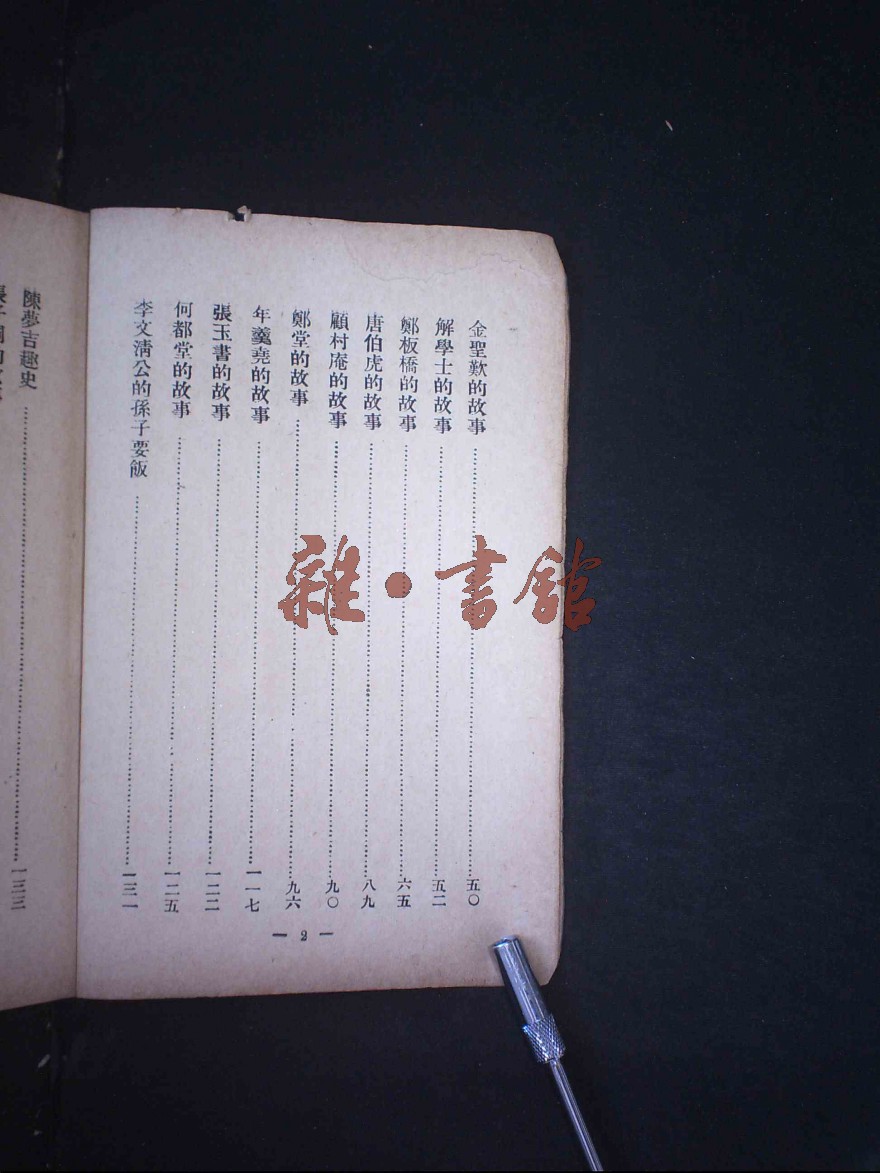 金聖歎的故事……五〇
解學士的故事……五二
鄭板橋的故事……六五
唐伯虎的故事……八九
顧村庵的故事……九〇
鄭堂的故事……九六
年羹堯的故事……一一七
張玉書的故事……一二二
何都堂的故事……一二五
李文淸公的係子要飯……一三一
— 2 —
陳夢吉趣史……一三三
雜·書館